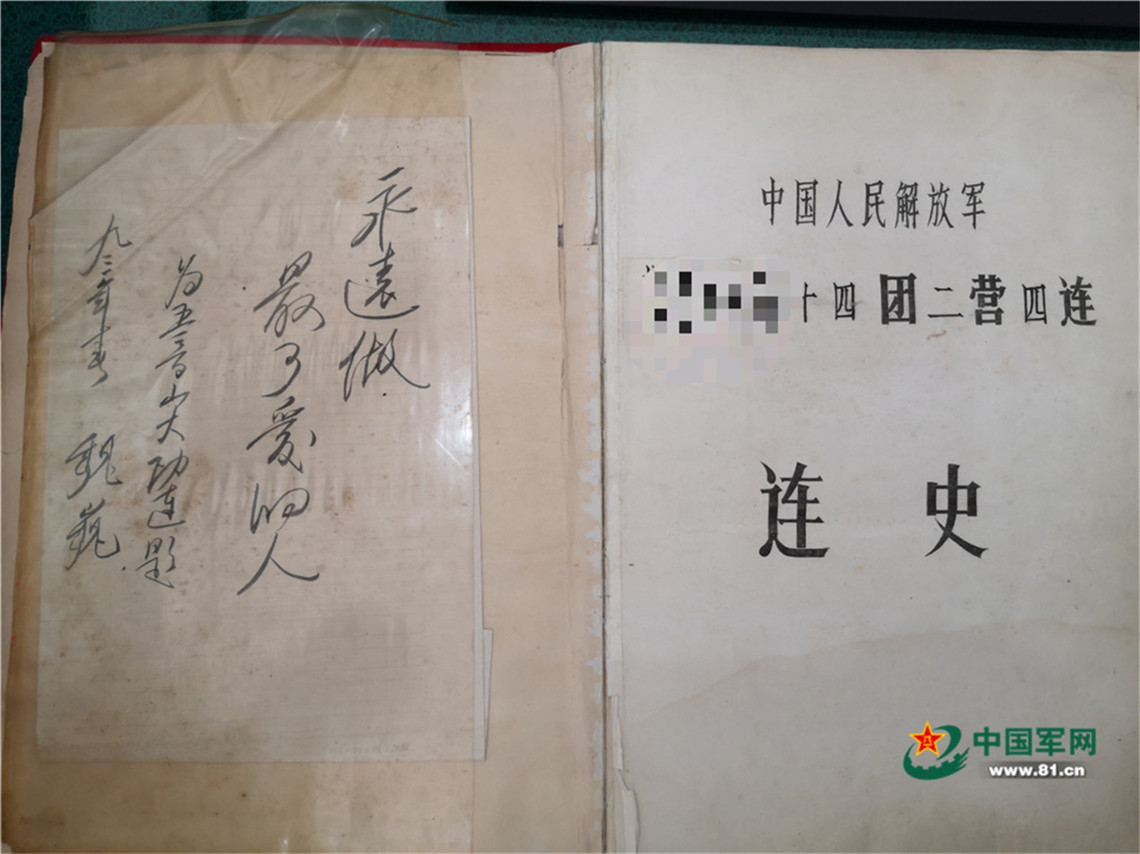 永遠做
最可爱的人
为五音山大功连题
九二年春 魏巍
中国人民解放军
十四团二营四连
连史
中国军网
www.81.cn